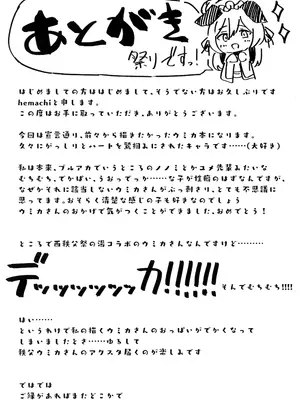 あとがき
祭りですっ!
はじめましての方ははじめまして、そうでない方はお久しぶりです
hemachiと申します。
この度はお手に取っていただき、ありがとうございます。
今回は宣言通り、前々から描きたかったウミカ本になります。
久々にがっしりとハートを鷲掴みにされたキャラです…(大好き)
私は本来、ブルアカでいうところのノノミとかユメ先輩みたいな
むちむち、でかぱい、うおっでっか…な子が性癖のはずなんですが、
なぜかそれに該当しないウミカさんがぶっ刺さり、とても不思議に
思ってます。おそらく清楚な感じの子も好きなのでしょう
ウミカさんのおかげで気がつくことができました、おめでとう!
ところで西秩父祭の湯コラボのウミカさんなんですけど………
デッッッッッッカ!!!!!!
そんでむちむち!!!!
はい……
というわけで私の描くウミカさんのおっぱいがでかくなって
しまいましたとさ……ゆるして
秩父ウミカさんのアクスタ届くのが楽しみです
ではでは
ご縁があればまたどこかで